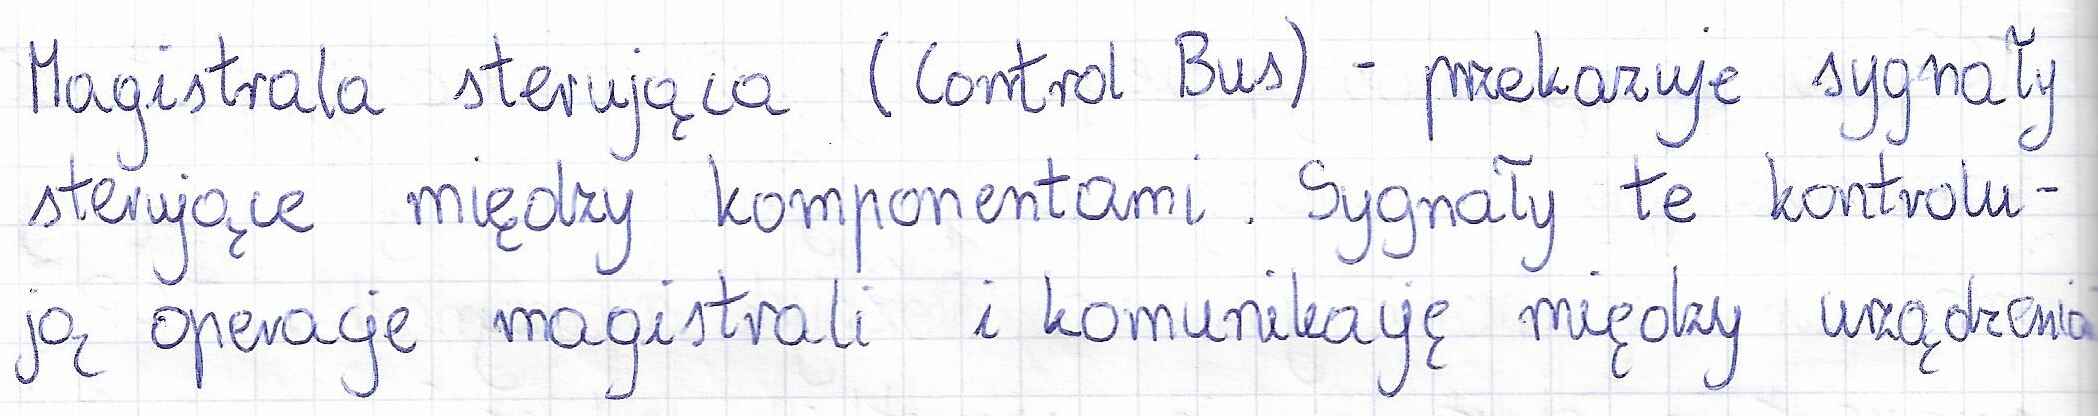 Magistrala sterująca (Control Bus) - przekazuje sygnały
sterujące między komponentami. Sygnały te kontrolu-
ją operacje magistrali i komunikację między urządzenia